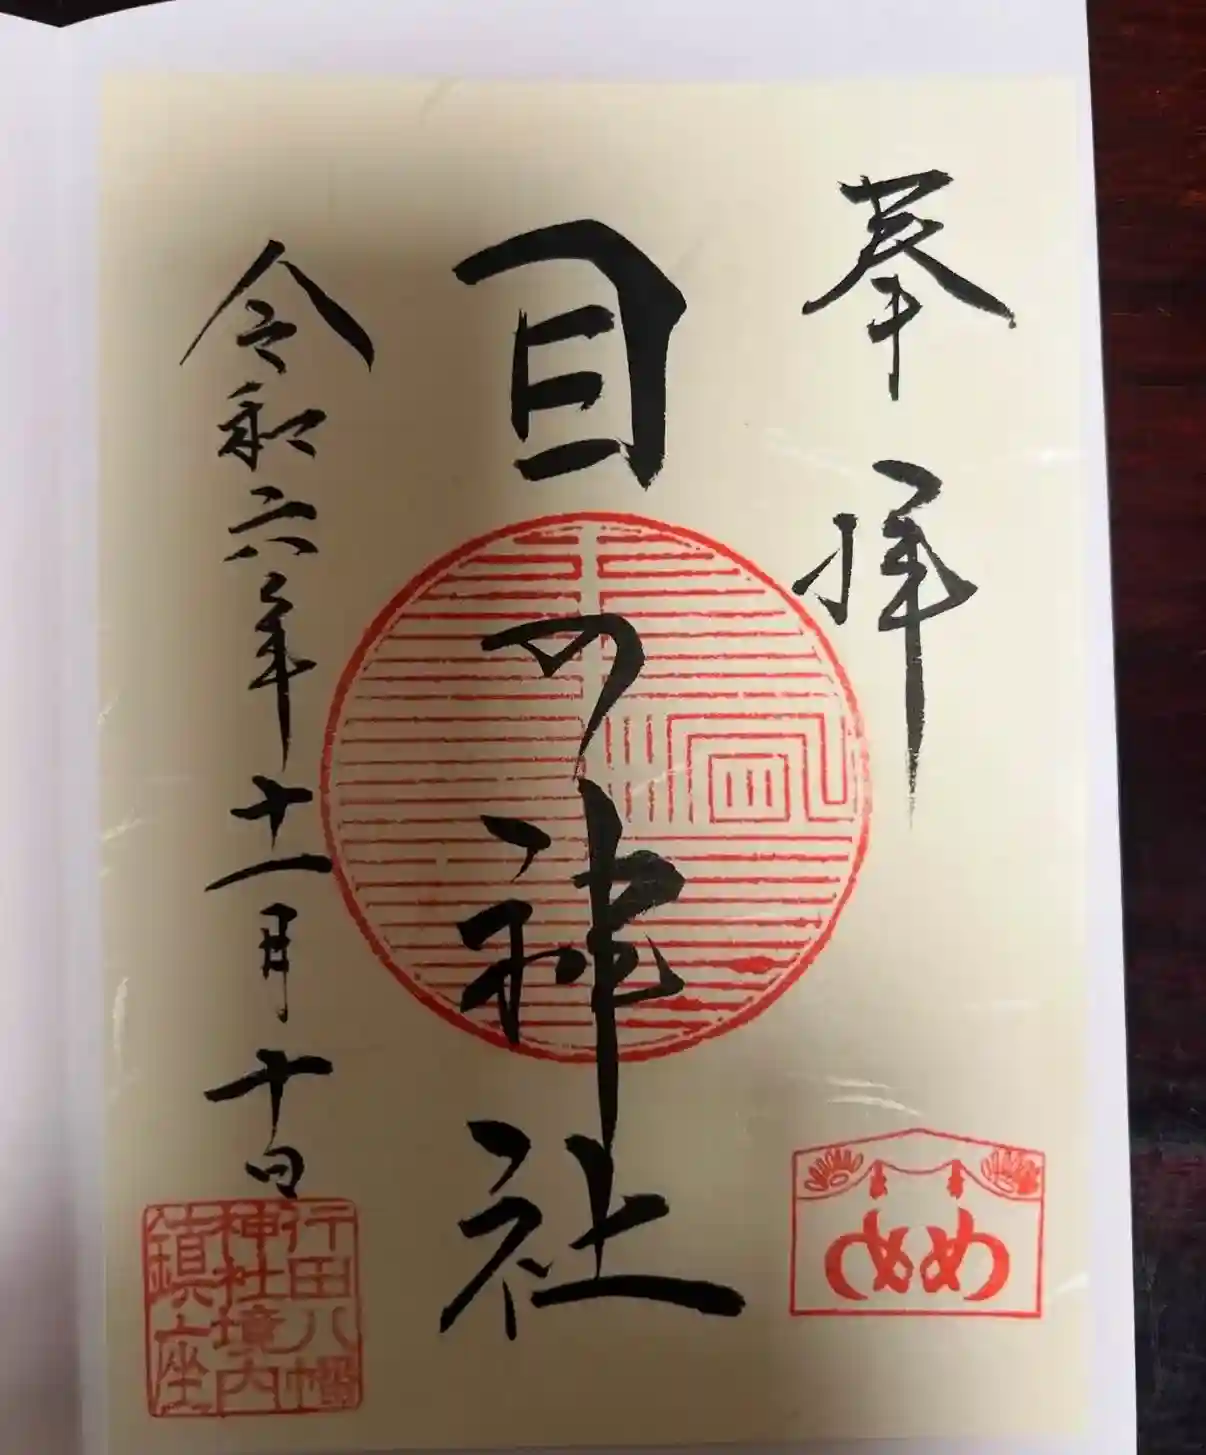 奉拝
目の神社
令和六年十一月十日
行田八幡
神社境内
鎮座
め め